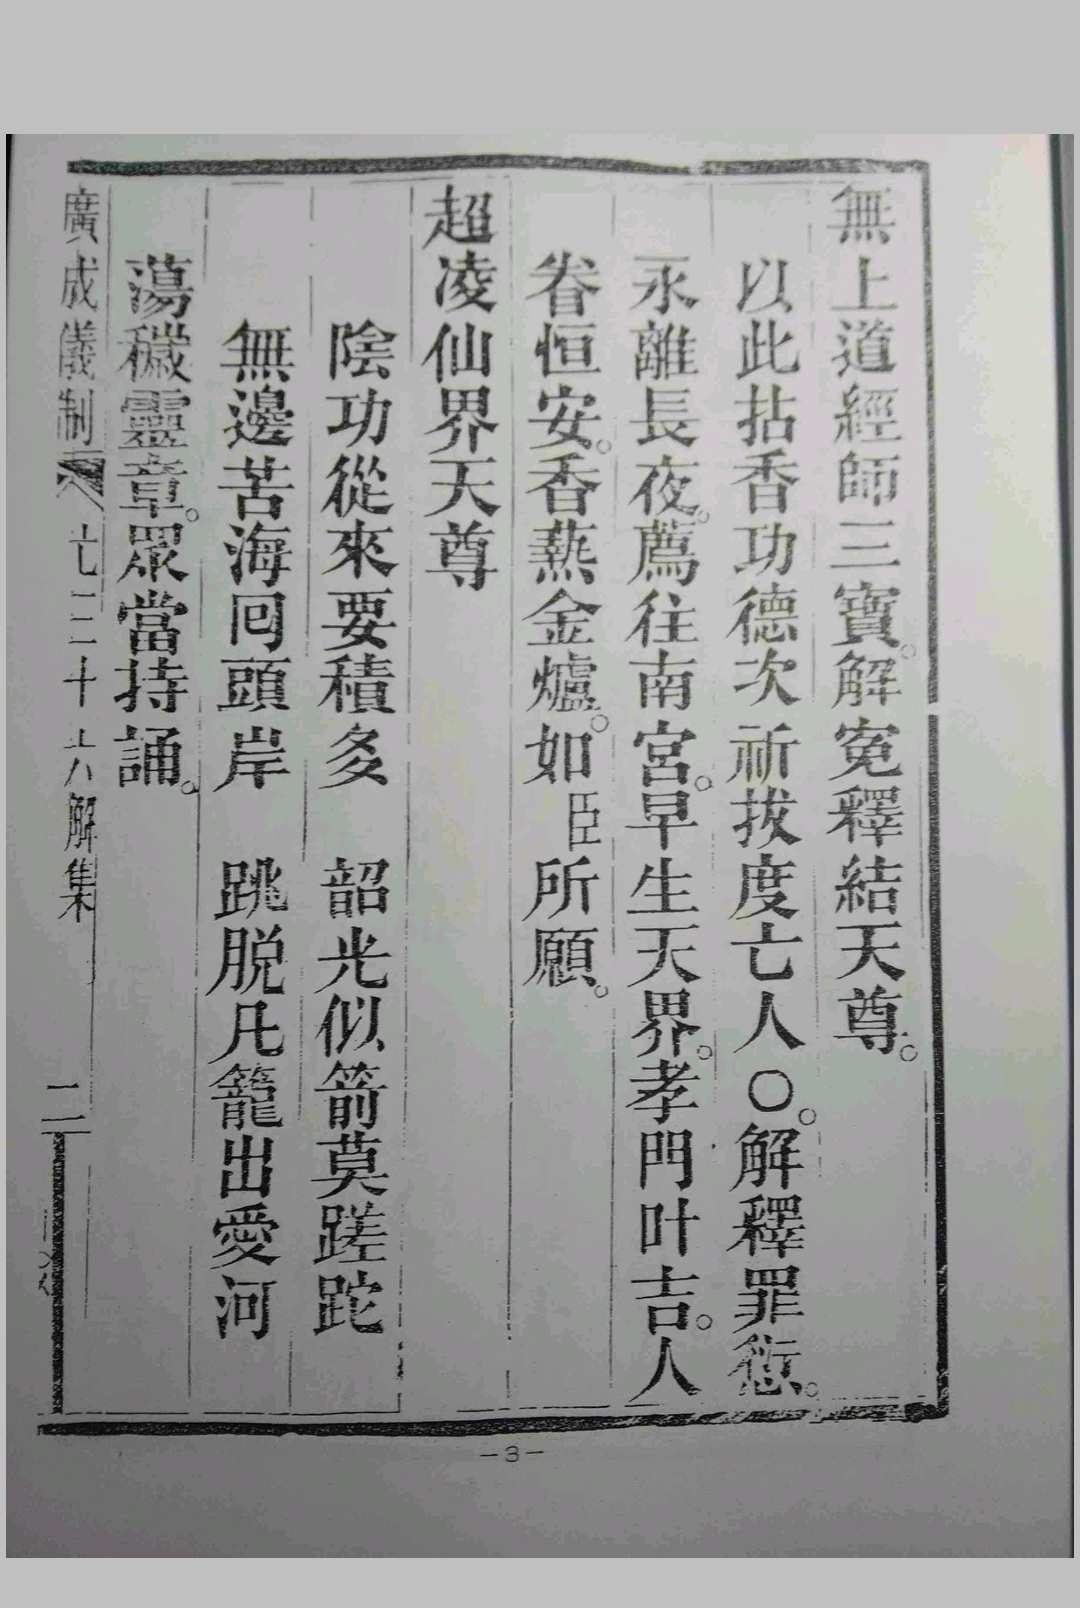 無上道經師三寶。解寃釋結天尊。
以此拈香功德次祈拔度亡人○。解釋罪愆。
永離長夜。薦往南宮。早生天界。孝門叶吉。人
眷恒安。香爇金爐。如臣所願。
超凌仙界天尊
陰功從來要積多 韶光似箭莫蹉跎
無邊苦海囘頭岸 跳脱凡籠出愛河
蕩穢靈章。眾當持誦。
廣成儀制 亡二十六解集
二
—3—